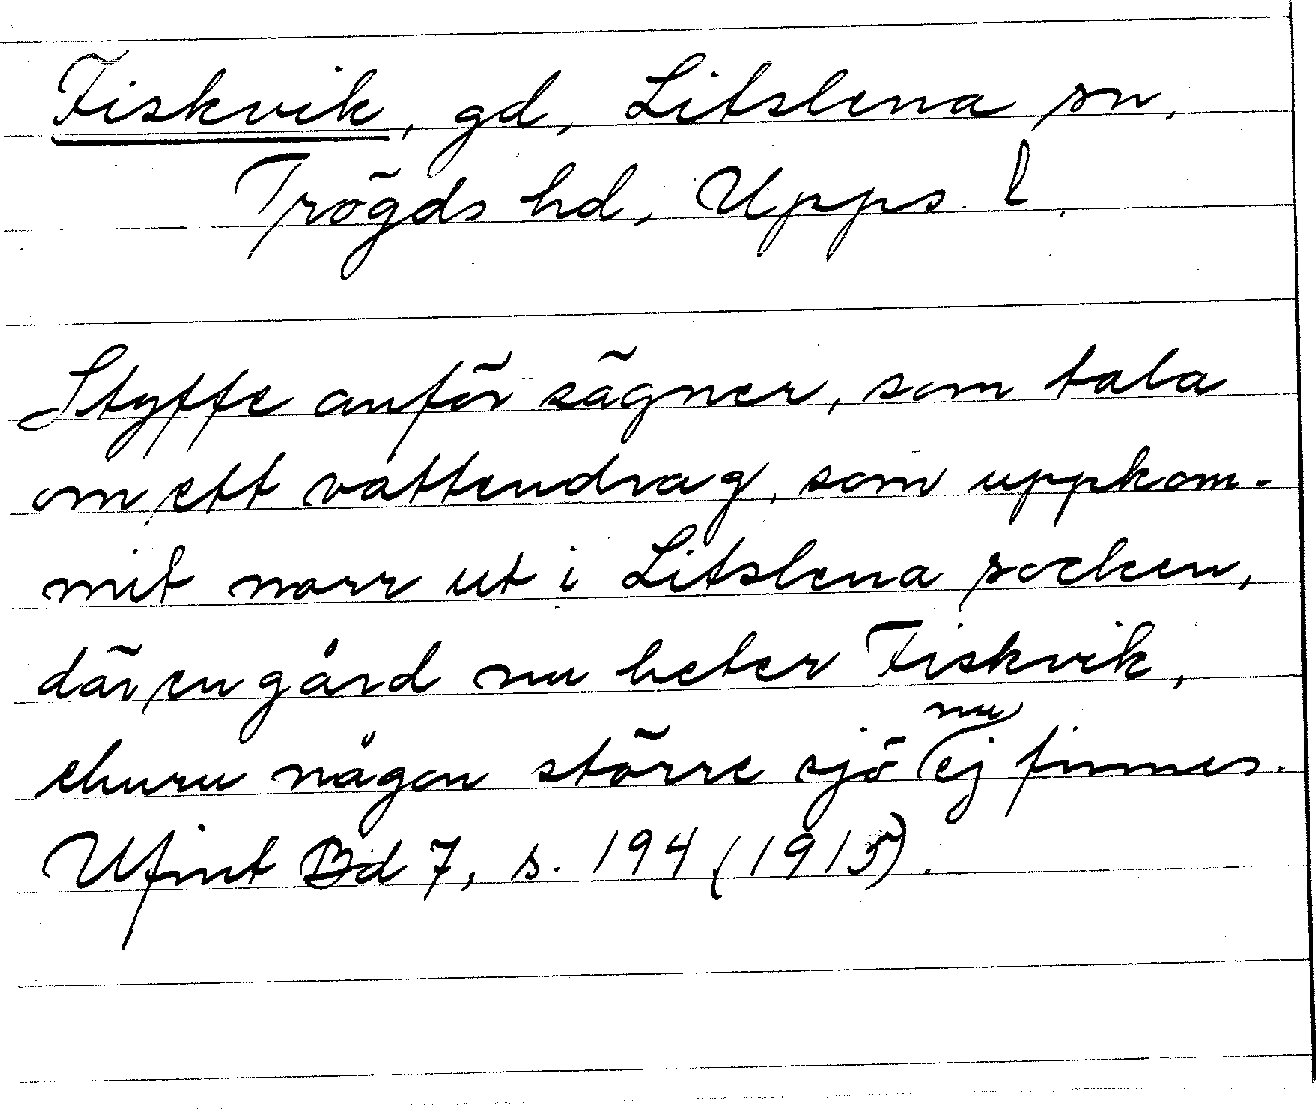 Fiskvik, gd, Litslena sn,
Trögds hd, Upps. l.
Styffe anför sägner, som tala
om ett vattendrag, som uppkom-
mit norr ut i Litslena socken,
där en gård nu heter Fiskvik,
ehuru någon större sjö nu ej finnes.
Ufmt Bd 7, s. 194 (1915).